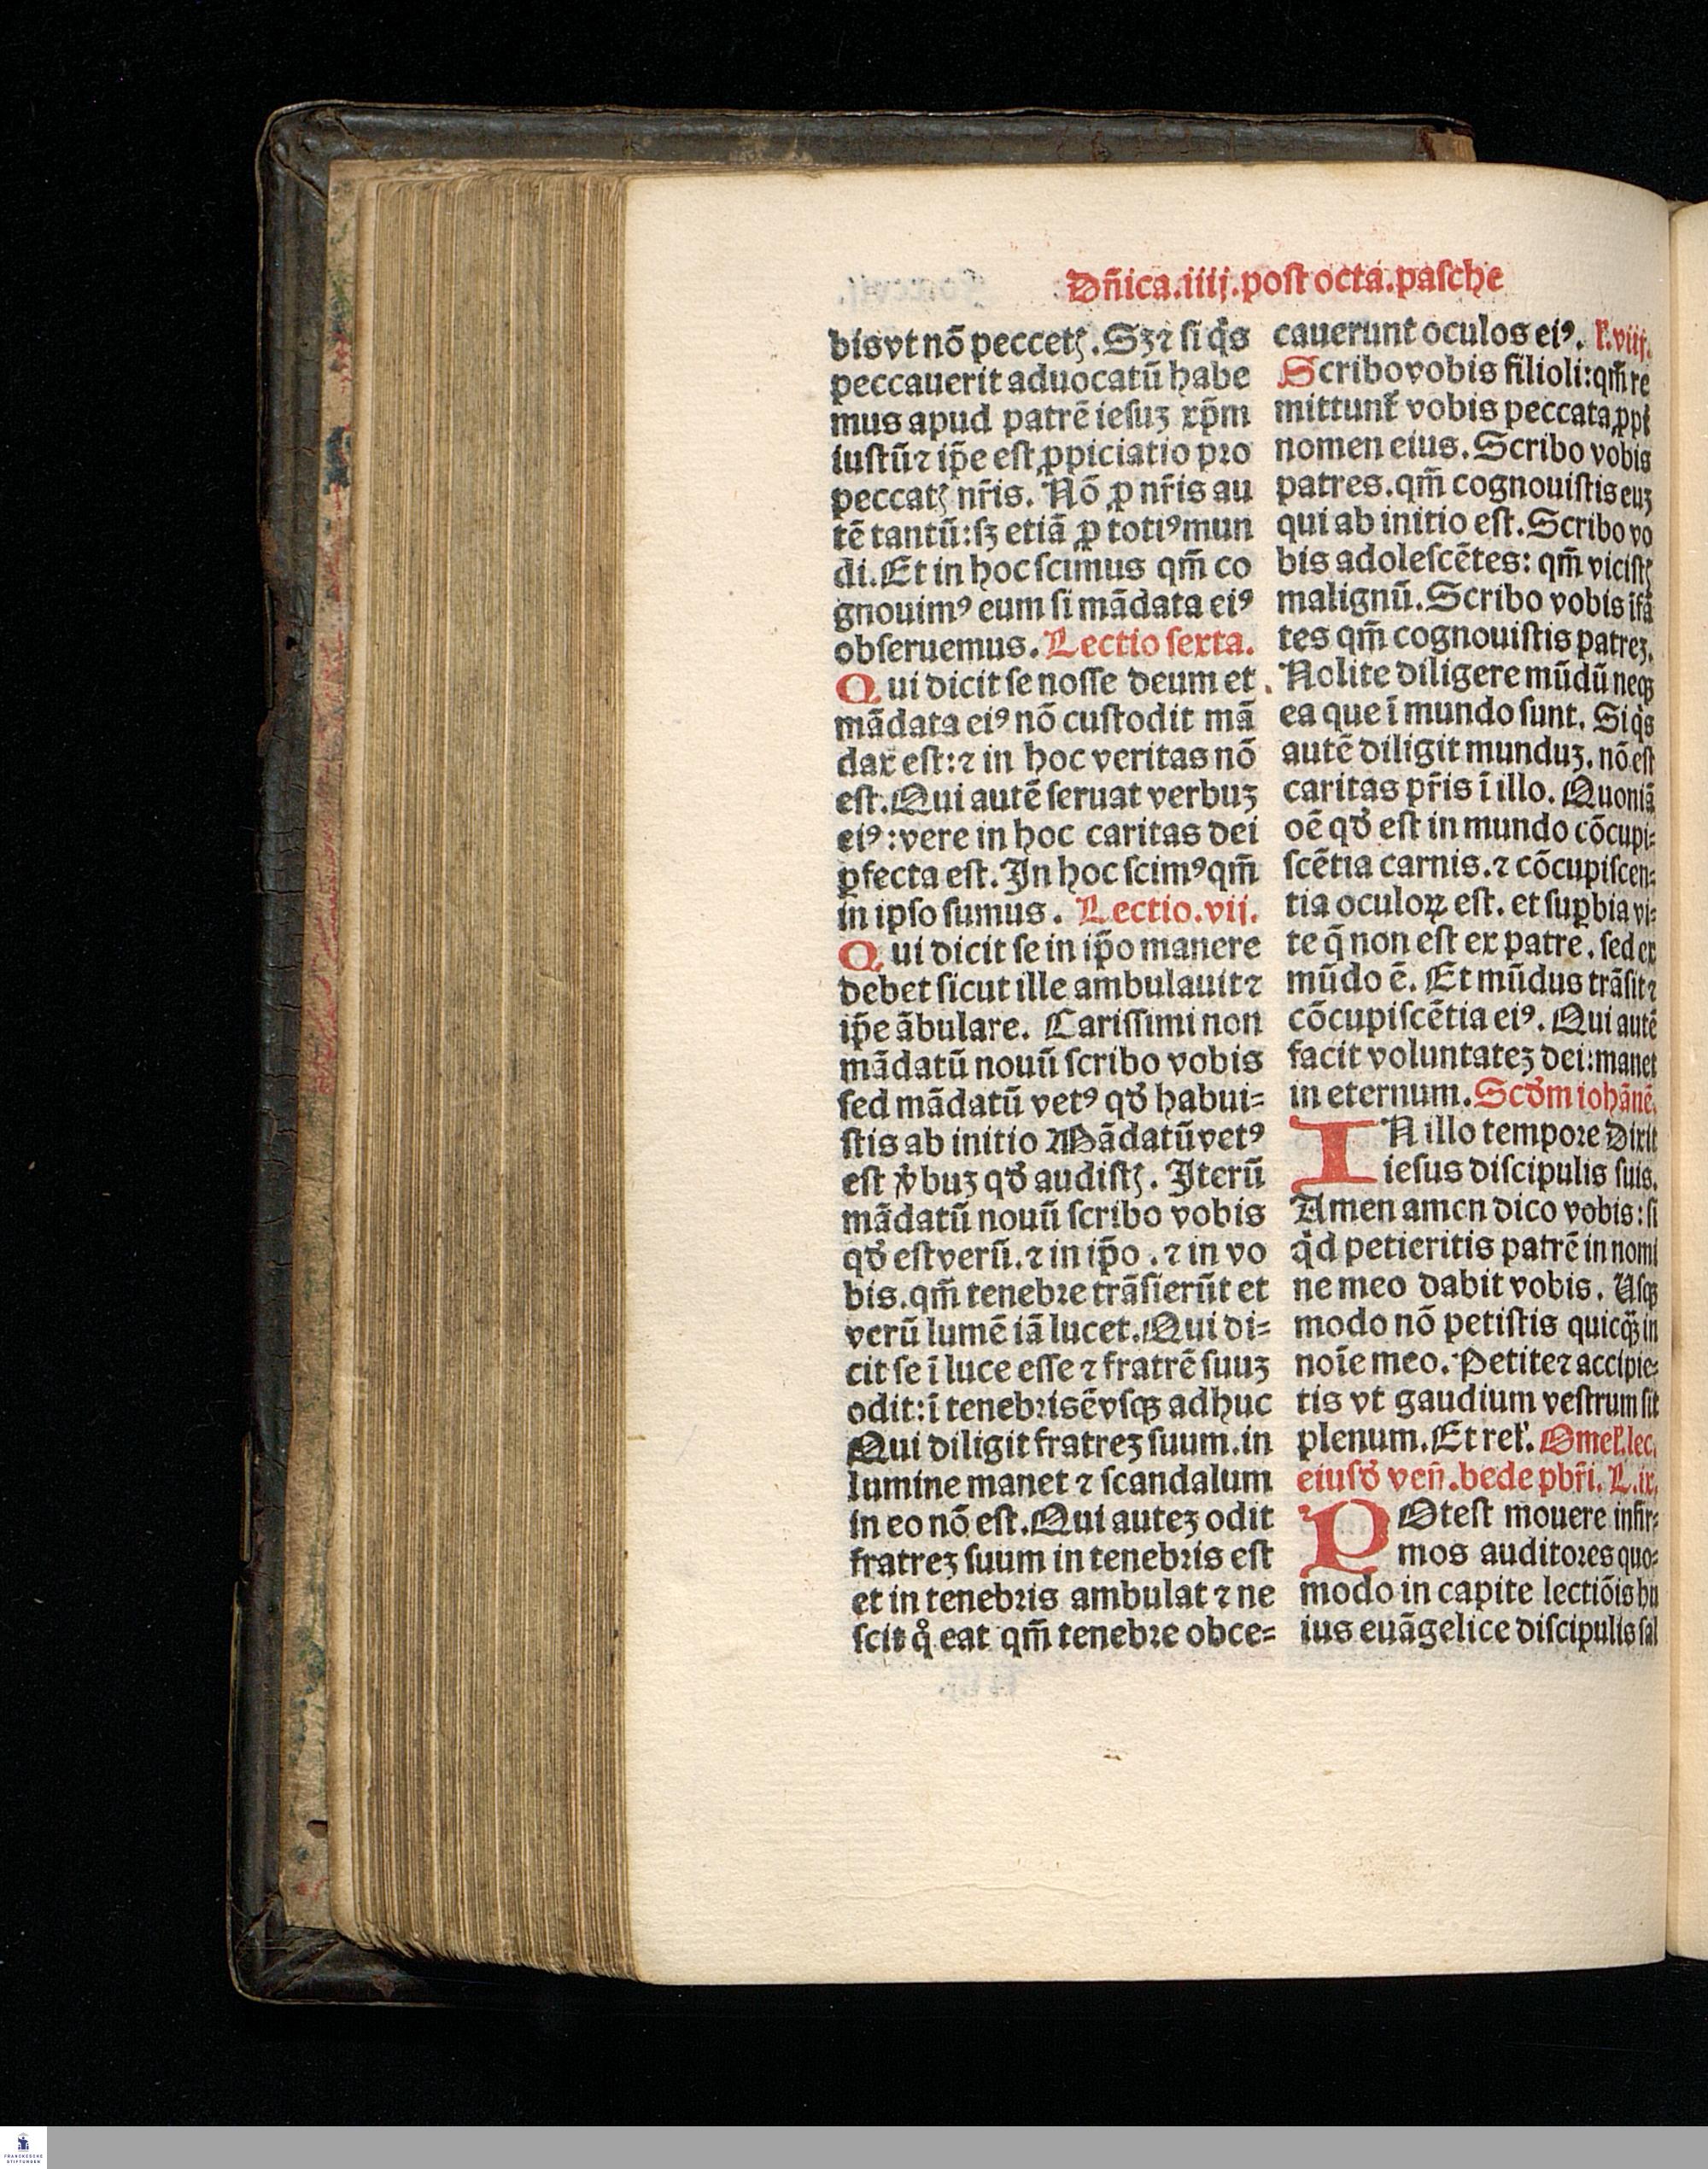 Dñica.iiij.post octa.pasche
bis vt nō peccetꝭ. Sꝫ ⁊ si q̇s
peccauerit aduocatū habe
mus apud patrē iesuꝫ xp̄m
iustū ⁊ ip̄e est ꝓpiciatio pro
peccatꝭ nr̄is. Nō ꝓ nr̄is au
tē tantū: sꝫ etiā ꝓ totiꝰ mun
di. Et in hoc scimus qm̄ co
gnouimꝰ eum si mādata eiꝰ
obseruemus. Lectio sexta.
Qui dicit se nosse deum et
mādata eiꝰ nō custodit mā
dax est: ⁊ in hoc veritas nō
est. Qui autē seruat verbuꝫ
eiꝰ: vere in hoc caritas dei
ꝑfecta est. In hoc scimꝰ qm̄
in ipso sumus. Lectio.vij.
Qui dicit se in ip̄o manere
debet sicut ille ambulauit ⁊
ip̄e ābulare. Carissimi non
mādatū nouū scribo vobis
sed mādatū vetꝰ qd̓ habui=
stis ab initio Mādatū vetꝰ
est v̓buꝫ qd̓ audistꝭ. Iterū
mādatū nouū scribo vobis
qd̓ est verū. ⁊ in ip̄o . ⁊ in vo
bis. qm̄ tenebre trāsierūt et
verū lumē iā lucet. Qui di=
cit se ī luce esse ⁊ fratrē suuꝫ
odit: ī tenebris ē vsqꝫ adhuc
Qui diligit fratreꝫ suum. in
lumine manet ⁊ scandalum
in eo nō est. Qui auteꝫ odit
fratreꝫ suum in tenebris est
et in tenebris ambulat ⁊ ne
scit qͦ eat qm̄ tenebre obce=
cauerunt oculos eiꝰ. l̓.viij.
Scribo vobis filioli: qm̄ re
mittunt᷑ vobis peccata ꝓpt
nomen eius. Scribo vobis
patres. qm̄ cognouistis euꝫ
qui ab initio est. Scribo vo
bis adolescētes: qm̄ vicistꝭ
malignū. Scribo vobis ifā
tes qm̄ cognouistis patreꝫ.
Nolite diligere mūdū neqꝫ
ea que ī mundo sunt. Si q̇s
autē diligit munduꝫ. nō est
caritas pr̄is ī illo. Quoniā
oē qd̓ est in mundo cōcupi=
scētia carnis. ⁊ cōcupiscen=
tia oculoꝝ est. et suꝑbia vi=
te q̄ non est ex patre. sed ex
mūdo ē. Et mūdus trāsit ⁊
cōcupiscētia eiꝰ. Qui autē
facit voluntateꝫ dei: manet
in eternum. Scd̓m iohānē.
IN illo tempore Dixit
iesus discipulis suis.
Amen amen dico vobis: si
qͥd petieritis patrē in nomi
ne meo dabit vobis. Usqꝫ
modo nō petistis quicqͣꝫ in
noīe meo. Petite ⁊ accipie=
tis vt gaudium vestrum sit
plenum. Et rel̓. Omel̓. lec.
eiusd̓ ven̄. bede pbr̄i. L.ix.
POtest mouere infir=
mos auditores quo=
modo in capite lectiōis hu
ius euāgelice discipulis sal
FRANCKESCHE
STIFTUNGEN